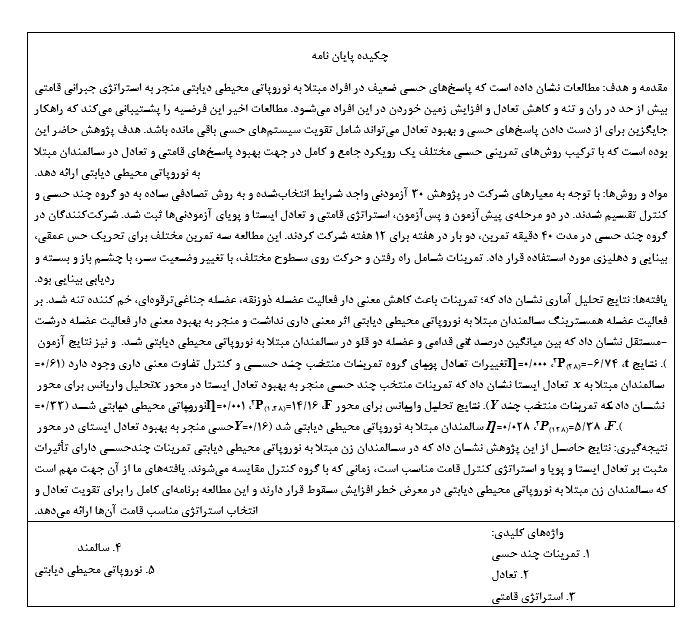 چکیده پایان نامه
مقدمه و هدف: مطالعات نشان داده است که پاسخ‌های حسی ضعیف در افراد مبتلا به نوروپاتی محیطی دیابتی منجر به استراتژی جبرانی قامتی
بیش از حد در ران و تنه و کاهش تعادل و افزایش زمین خوردن در این افراد می‌شود. مطالعات اخیر این فرضیه را پشتیبانی می‌کند که راهکار
جایگزین برای از دست دادن پاسخ‌های حسی و بهبود تعادل می‌تواند شامل تقویت سیستم‌های حسی باقی مانده باشد. هدف پژوهش حاضر این
بوده است که با ترکیب روش‌های تمرینی حسی مختلف یک رویکرد جامع و کامل در جهت بهبود پاسخ‌های قامتی و تعادل در سالمندان مبتلا
به نوروپاتی محیطی دیابتی ارائه دهد.
مواد و روش‌ها: با توجه به معیارهای شرکت در پژوهش ۳۰ آزمودنی واجد شرایط انتخاب‌شده و به روش تصادفی ساده به دو گروه چند حسی و
کنترل تقسیم شدند. در دو مرحله‌ی پیش‌آزمون و پس‌آزمون، استراتژی قامتی و تعادل ایستا و پویای آزمودنی‌ها ثبت شد. شرکت‌کنندگان در
گروه چند حسی در مدت ۴۰ دقیقه تمرین، دو بار در هفته برای ۱۲ هفته شرکت کردند. این مطالعه سه تمرین مختلف برای تحریک حس عمقی،
بینایی و دهلیزی مورد استفاده قرار داد. تمرینات شامل راه رفتن و حرکت روی سطوح مختلف، با تغییر وضعیت سر، با چشم باز و بسته و
ردیابی بینایی بود.
یافته‌ها: نتایج تحلیل آماری نشان داد که؛ تمرینات باعث کاهش معنی دار فعالیت عضله ذوزنقه، عضله جناغی‌ترقوه‌ای، خم کننده تنه شد. بر
فعالیت عضله همسترینگ سالمندان مبتلا به نوروپاتی محیطی دیابتی اثر معنی داری نداشت و منجر به بهبود معنی دار فعالیت عضله درشت
-مستقل نشان داد که بین میانگین درصد tنی قدامی و عضله دو قلو در سالمندان مبتلا به نوروپاتی محیطی دیابتی شد. و نیز نتایج آزمون
). نتایج t، ۶/۷۴-=(۲۸)P، ۲η=۰/۰۰۰تغییرات تعادل پویای گروه تمرینات منتخب چند حسی و کنترل تفاوت معنی داری وجود دارد (۰/۶۱=
سالمندان مبتلا به x تعادل ایستا نشان داد که تمرینات منتخب چند حسی منجر به بهبود تعادل ایستا در محور xتحلیل واریانس برای محور
نشان داد که تمرینات منتخب چند Y). نتایج تحلیل واریانس برای محور F، ۱۴/۱۶=(۱،۲۸)P، ۲η=۰/۰۰۱نوروپاتی محیطی دیابتی شد (۰/۳۳=
).F، ۵/۳۸=(۱،۲۸)P، ۲η=۰/۰۲۸ سالمندان مبتلا به نوروپاتی محیطی دیابتی شد (۰/۱۶=Yحسی منجر به بهبود تعادل ایستای در محور
نتیجه‌گیری: نتایج حاصل از این پژوهش نشان داد که در سالمندان زن مبتلا به نوروپاتی محیطی دیابتی تمرینات چندحسی دارای تأثیرات
مثبت بر تعادل ایستا و پویا و استراتژی کنترل قامت مناسب است، زمانی که با گروه کنترل مقایسه می‌شوند. یافته‌های ما از آن جهت مهم است
که سالمندان زن مبتلا به نوروپاتی محیطی دیابتی در معرض خطر افزایش سقوط قرار دارند و این مطالعه برنامه‌ای کامل را برای تقویت تعادل و
انتخاب استراتژی مناسب قامت آن‌ها ارائه می‌دهد.
واژه‌های کلیدی:
۱. تمرینات چند حسی
۲. تعادل
۳. استراتژی قامتی
۴. سالمند
۵. نوروپاتی محیطی دیابتی